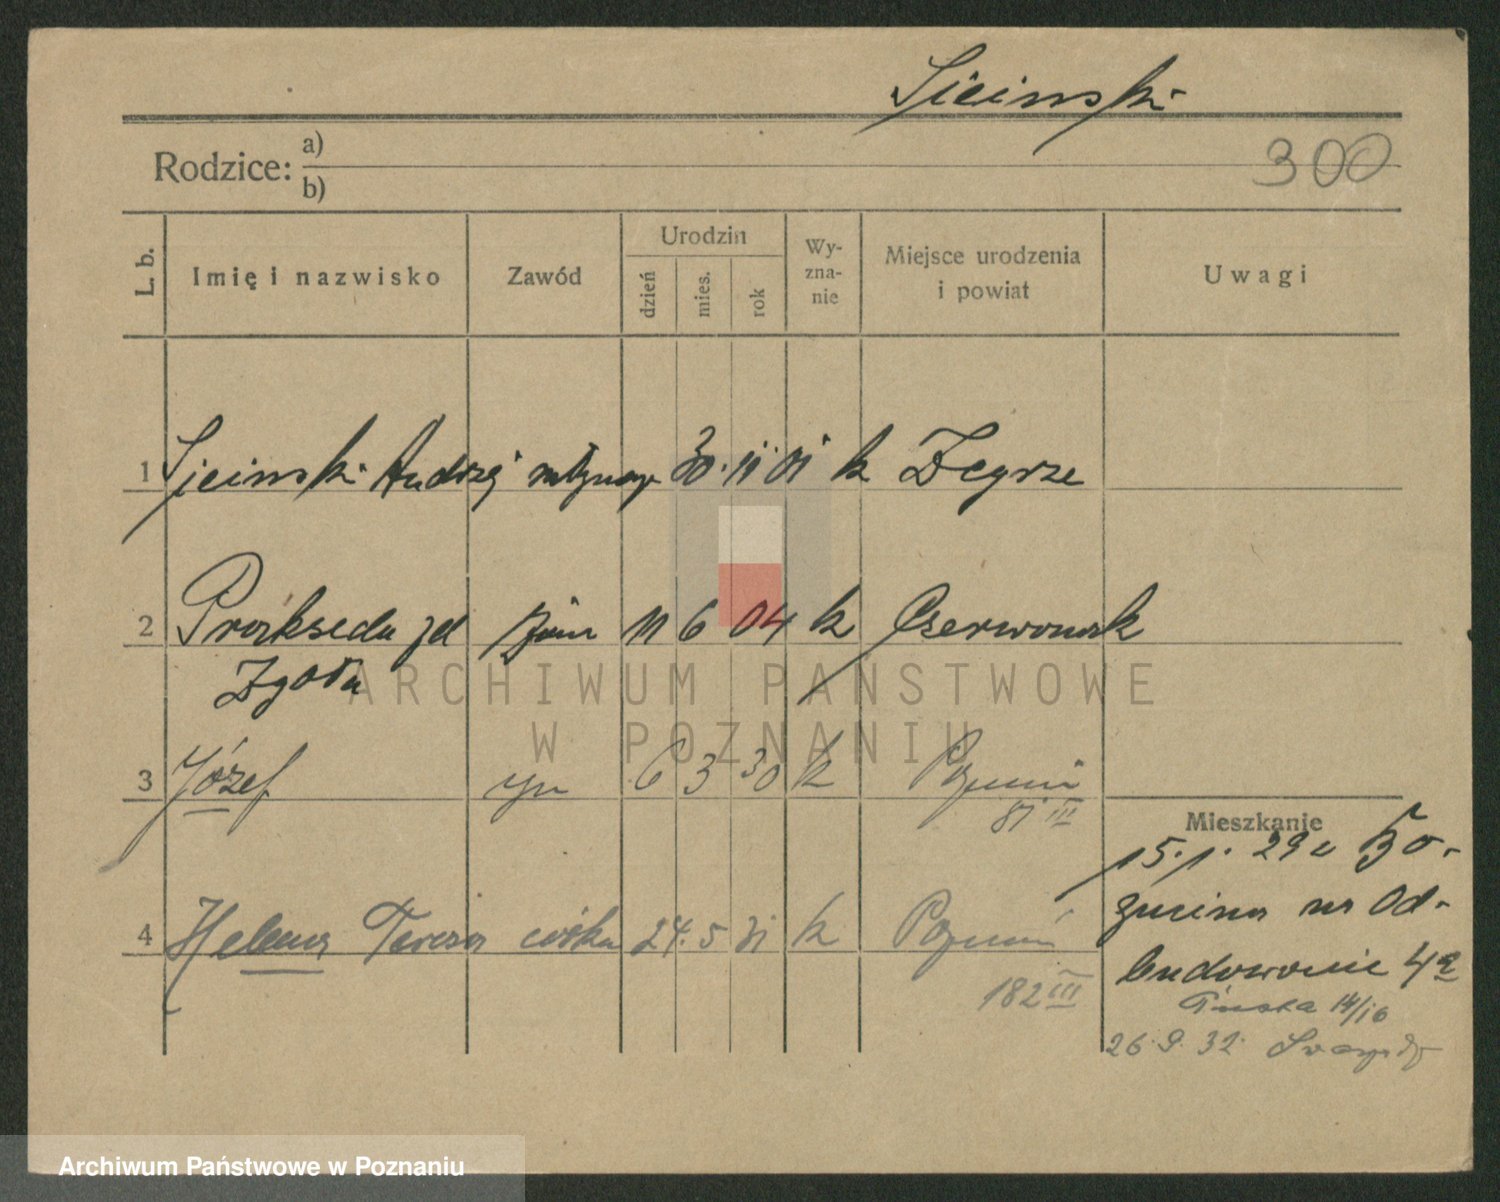 Sieinski
300
Rodzice: a)
b)
L. b. Imię i nazwisko Zawód Urodzin dzień mies. rok Wy-zna-nie Miejsce urodzenia i powiat Uwagi
1 Sieinski Andrzej młynarz 30. 11 01 k Zegrze
2 Prakseda zd żona 11 6 04 k Czerwonak
Zgoła
ARCHIWUM PAŃSTWOWE
W POZNANIU
3 Józef syn 6 3 30 k Poznań
81 III
4 Helena Teresa córka 24. 5 31 k Poznań
182 III
Mieszkanie
15. 1. 29
na Od-
budowanie 4a
14/16
26. 9. 32
Archiwum Państwowe w Poznaniu